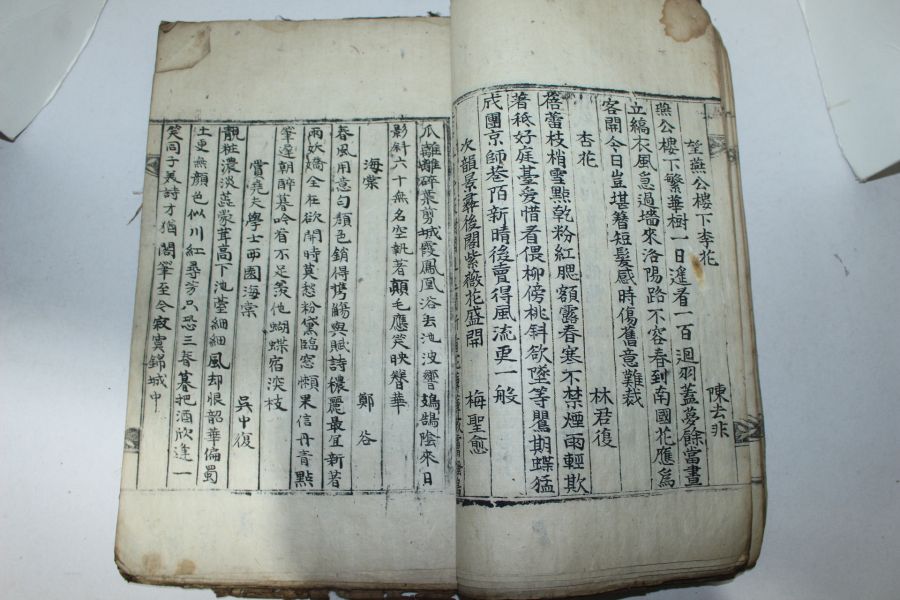 望燕公樓下李花 陳去非
燕公樓下繁華樹一日遙看一百迴羽蓋夢餘當晝
立縞衣風急過墻來洛陽路不容春到南國花應爲
客開今日豈堪簪短髮感時傷舊意難裁
杏花 林君復
蓓蕾枝梢雪點乾粉紅腮額露春寒不禁煙雨輕欺
著秪好庭臺愛惜看偎柳傍桃斜欲墜等鸎期蝶猛
成團京師巷陌新晴後賣得風流更一般
次韻景彝後閣紫薇花盛開 梅聖愈
瓜離離碎葉剪城霞鳳凰浴去池波響鳷鵲陰來日
影斜六十無名空執著顛毛應笑映簪華
海棠 鄭谷
春風用意勻顔色銷得携觴與賦詩穠麗最宜新著
雨妖嬌全在欲開時莫愁粉黛臨窓懶果信丹青點
筆遲朝醉暮吟看不足羨他蝴蝶宿深枝
賞堯夫學士西園海棠 吳中復
靚粧濃淡蘂蒙茸高下池臺細細風却恨韶華偏蜀
土更無顔色似川紅尋芳只恐三春暮把酒欣逢一
笑同子美詩才猶閣筆至今寂寞錦城中